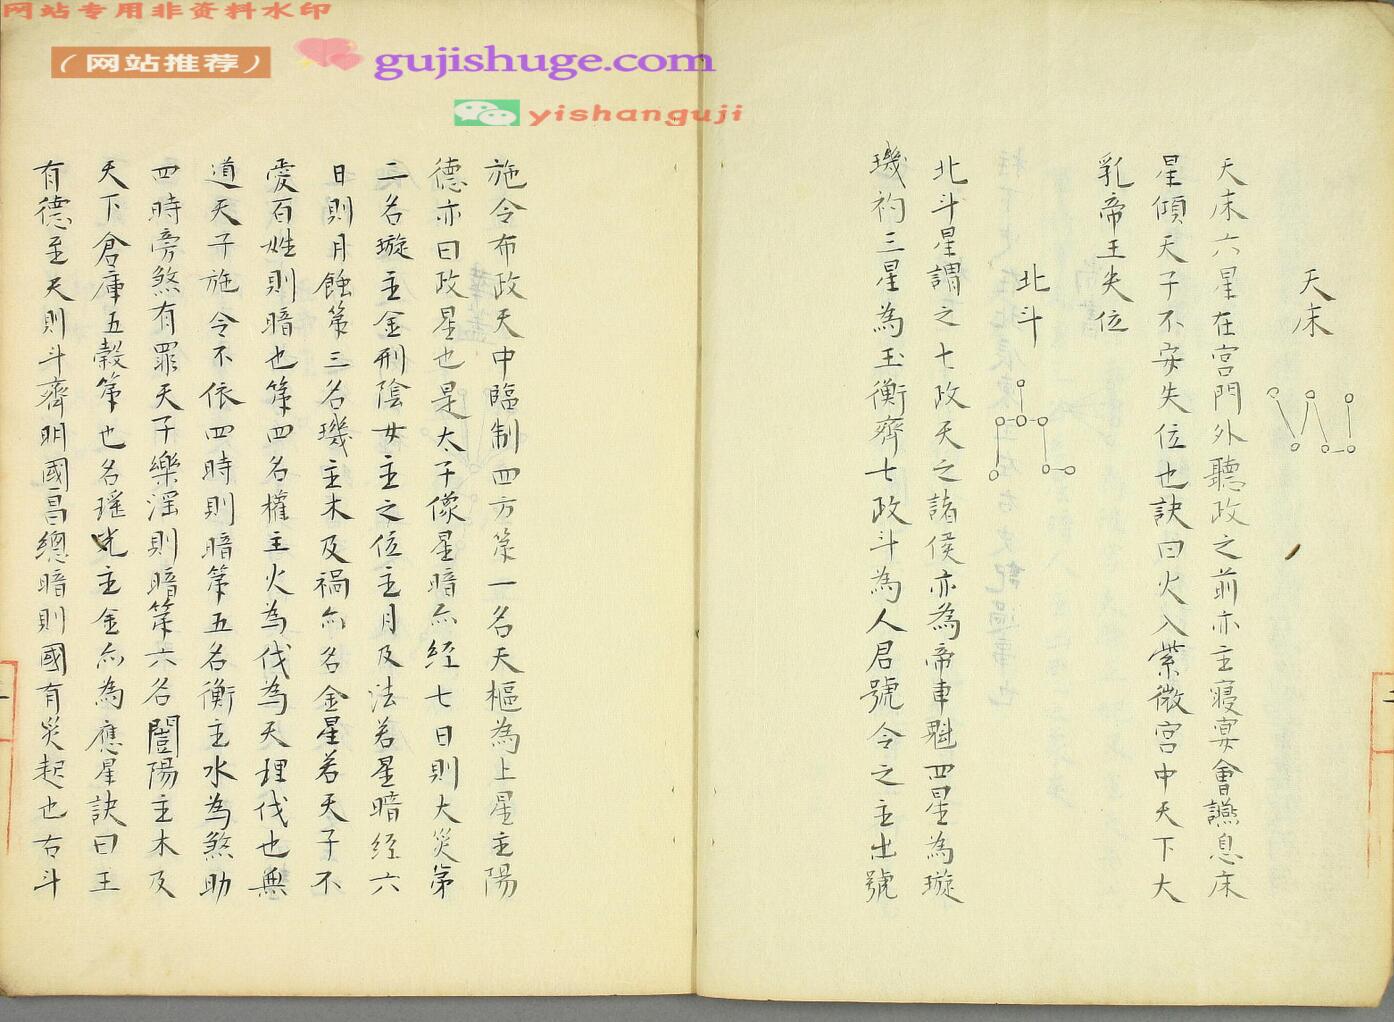 网站专用非资料水印
（网站推荐）
gujishuge.com
yishanguji
天床
天床六星在宮門外聽政之前亦主寝宴會讌息床
星傾天子不安失位也訣曰火入紫微宮中天下大
乳帝王失位
北斗
北斗星謂之七政天之諸侯亦為帝車魁四星為璇
璣杓三星為玉衡齊七政斗為人君號令之主出號
施令布政天中臨制四方第一名天樞為上星主陽
德亦曰政星也是太子像星暗亦经七日則大災第
二名璇主金刑陰女主之位主月及法若星暗经六
日則月蝕第三名璣主木及禍亦名金星若天子不
愛百姓則暗也第四名權主火為伐為天理伐也無
道天子施令不依四時則暗第五名衡主水為煞助
四時旁煞有罪天子樂淫則暗第六名闓陽主木及
天下倉庫五穀第也名瑤光主金亦為應星訣曰王
有德至天則斗齊明國昌總暗則國有災起也右斗
二